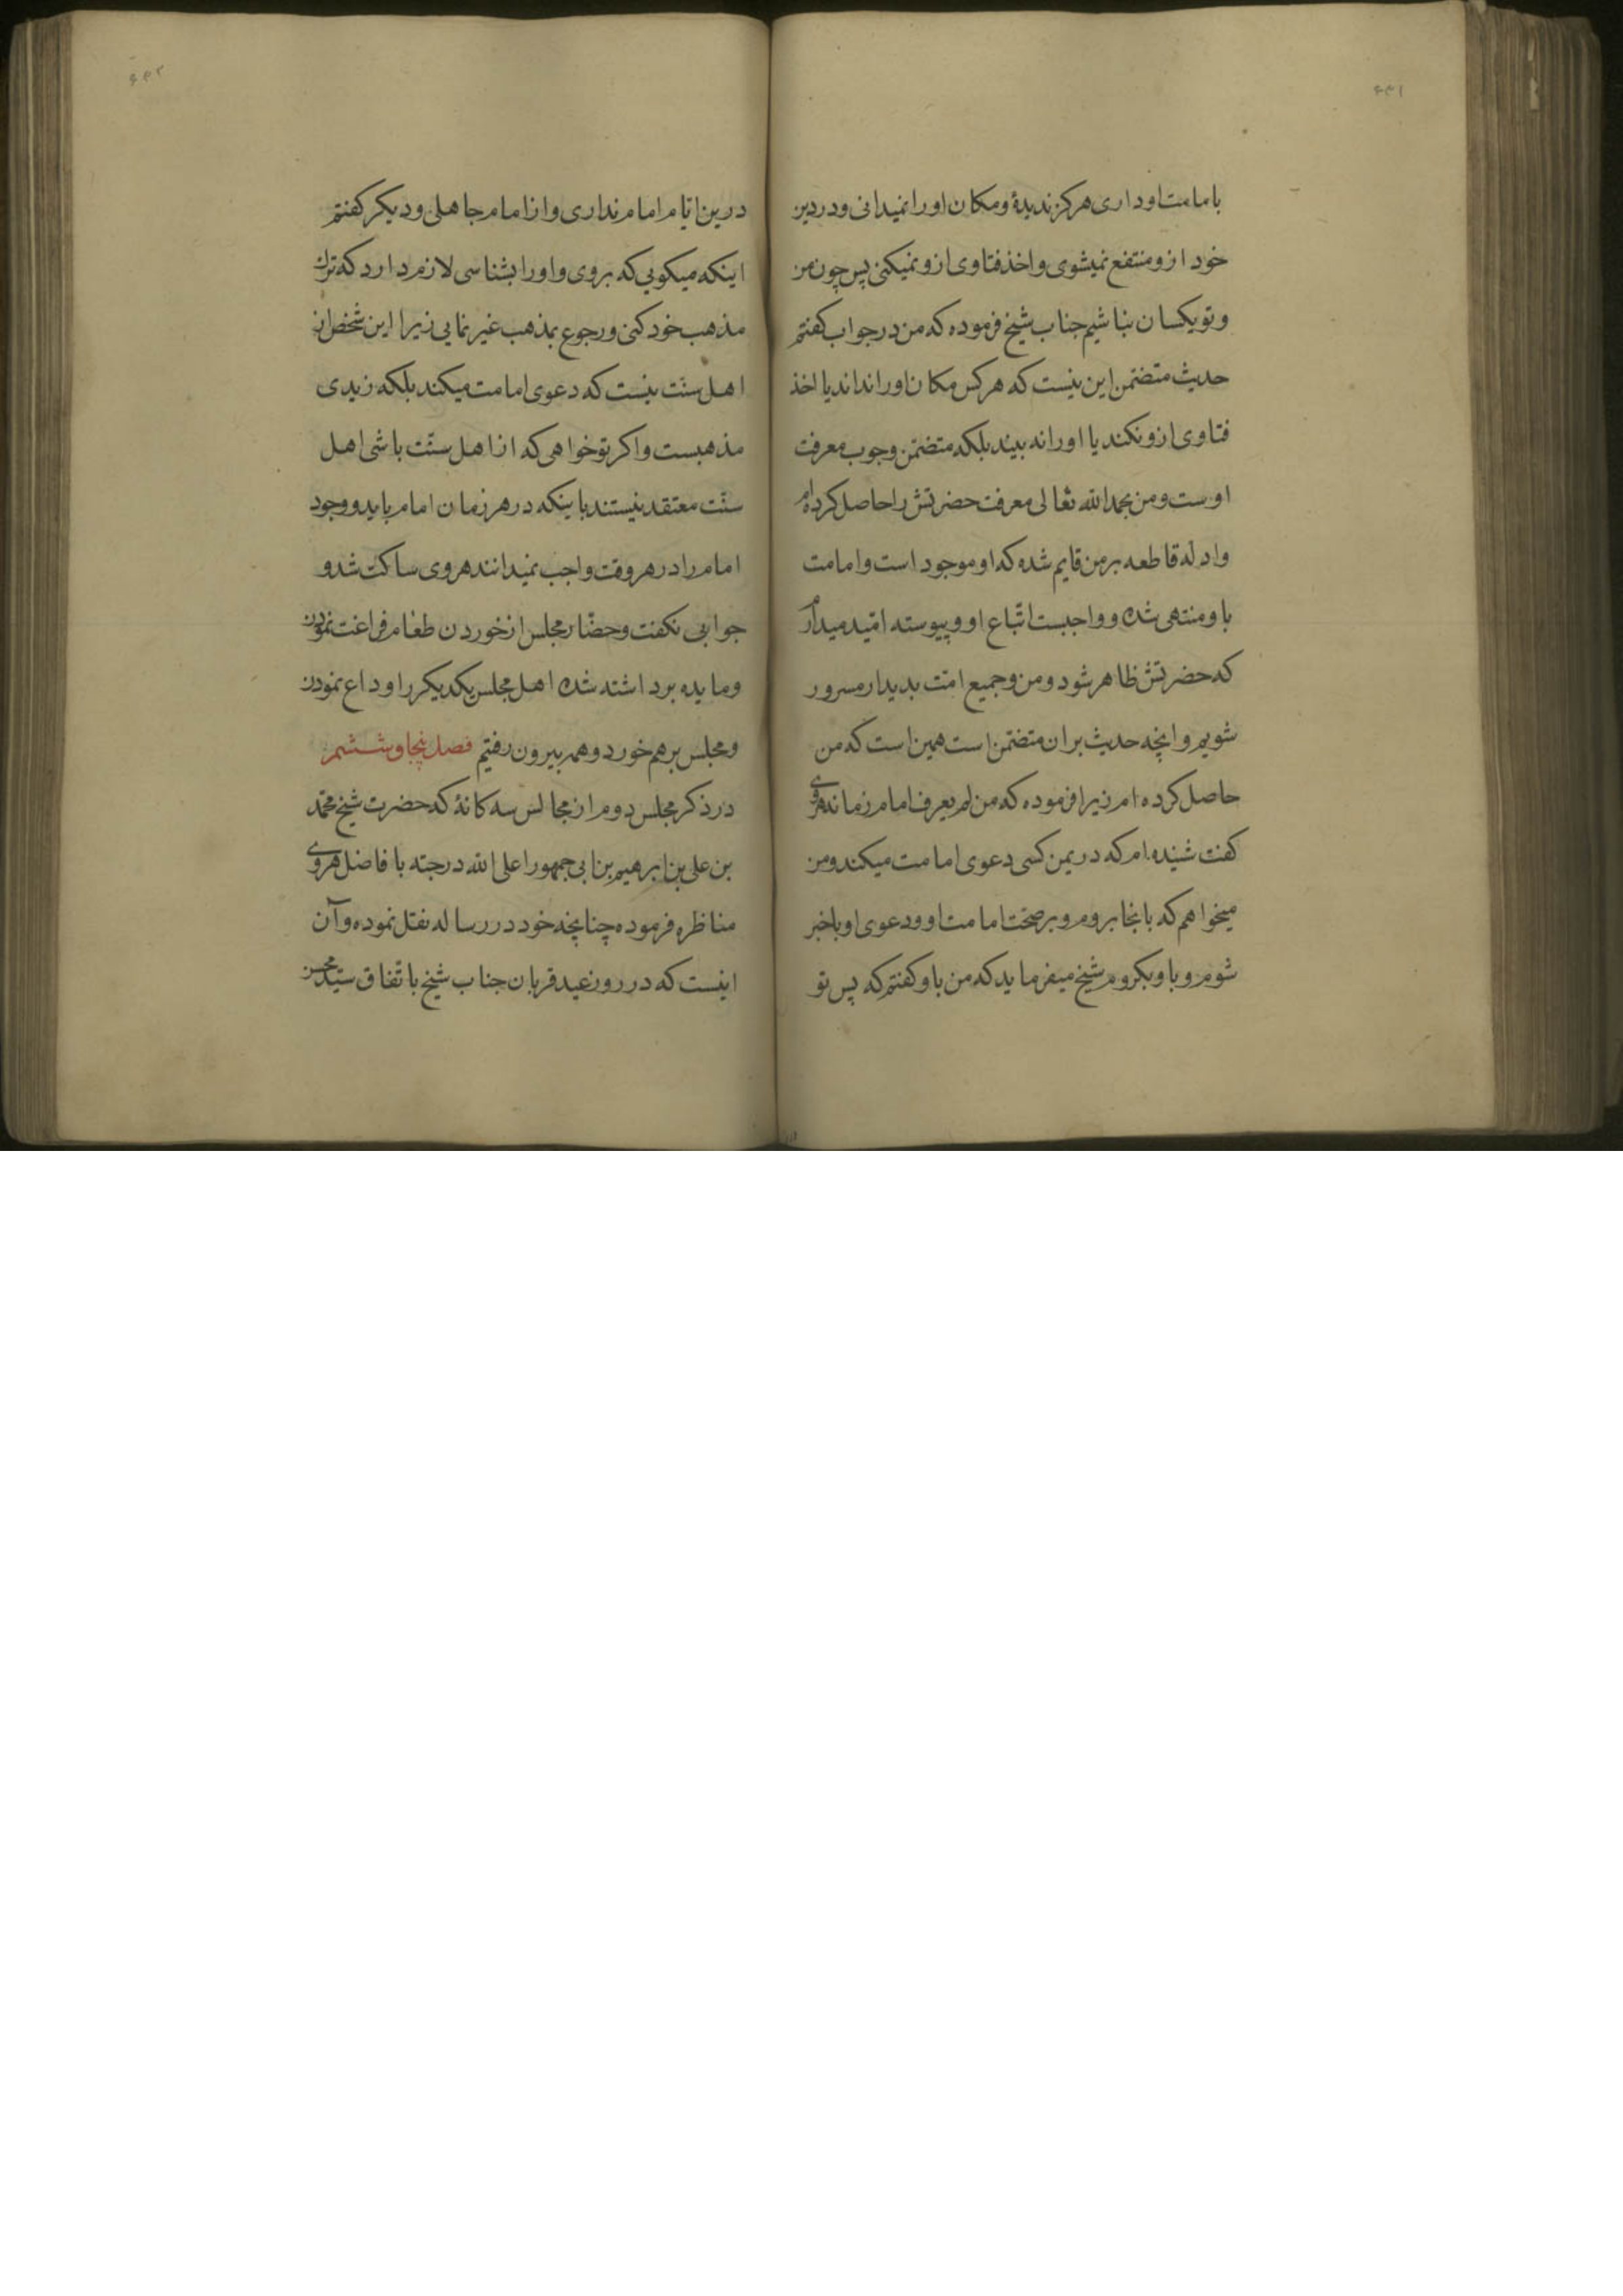 ۴۴۱
بامامت او داری هرکز ندیدهٔ و مکان او را نمیدانی و در دین
خود ازو منتفع نمیشوی و اخذ فتاوی ازو نمیکنی پس چون من
و تو یکسان نباشیم جناب شیخ فرموده که من در جواب کفتم
حدیث متضمن این نیست که هر کس مکان او را نداند یا اخذ
فتاوی ازو نکند یا او را نه بیند بلکه متضمن وجوب معرفت
اوست و من بحمدالله تعالی معرفت حضرتش را حاصل کرده‌ام
و ادلّه قاطعه بر من قایم شده که او موجود است و امامت
باو منتهی شده و واجبست اتّباع او و پیوسته امّید میدارم
که حضرتش ظاهر شود و من و جمیع امّت بدیدار مسرور
شویم و انچه حدیث بران متضمّن است همین است که من
حاصل کرده‌ام زیرا فرموده که من لم یعرف امام زمانه هروی
کفت شنیده‌ام که در یمن کسی دعوی امامت میکند و من
میخواهم که بانجا بروم و بر صحّت امامت او و دعوی او باخبر
شوم و باو بکروم شیخ میفرماید که من باو کفتم که پس تو
۴۴۲
درین ایّام امام نداری و از امام جاهلی و دیکر کفتم
اینکه میکویی که بروی و او را بشناسی لازم دارد که ترک
مذهب خود کنی و رجوع بمذهب غیر نمایی زیرا این شخص از
اهل سنّت نیست که دعوی امامت میکند بلکه زیدی
مذهبست و اکر تو خواهی که از اهل سنّت باشی اهل
سنّت معتقد نیستند باینکه در هر زمان امام باید و وجود
امام را در هر وقت واجب نمیدانند هروی ساکت شد و
جوابی نکفت و حضّار مجلس از خوردن طعام فراغت نمودن
و مایده برداشته شده اهل مجلس یکدیکر را وداع نمودن
و مجلس برهم خورد و همه بیرون رفتیم فصل پنجاو ششم
در ذکر مجلس دوم از مجالس سه کانهٔ که حضرت شیخ محمّد
بن علی بن ابرهیم بن ابی جمهور اعلی الله درجته با فاضل هروی
مناظره فرموده چنانچه خود در رساله نقل نموده و آن
اینست که در روز عید قربان جناب شیخ باتّفاق سیّد محسن